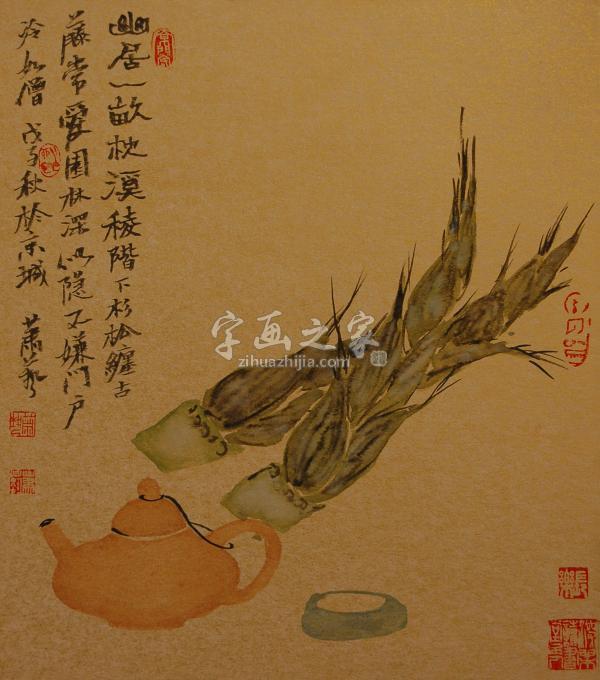 幽居一畝枕溪稜階下杉松纏古
藤常愛園林深似隱又嫌门户
冷如僧 戊子秋於京城 蕭
字画之家
zihuazhijia.com